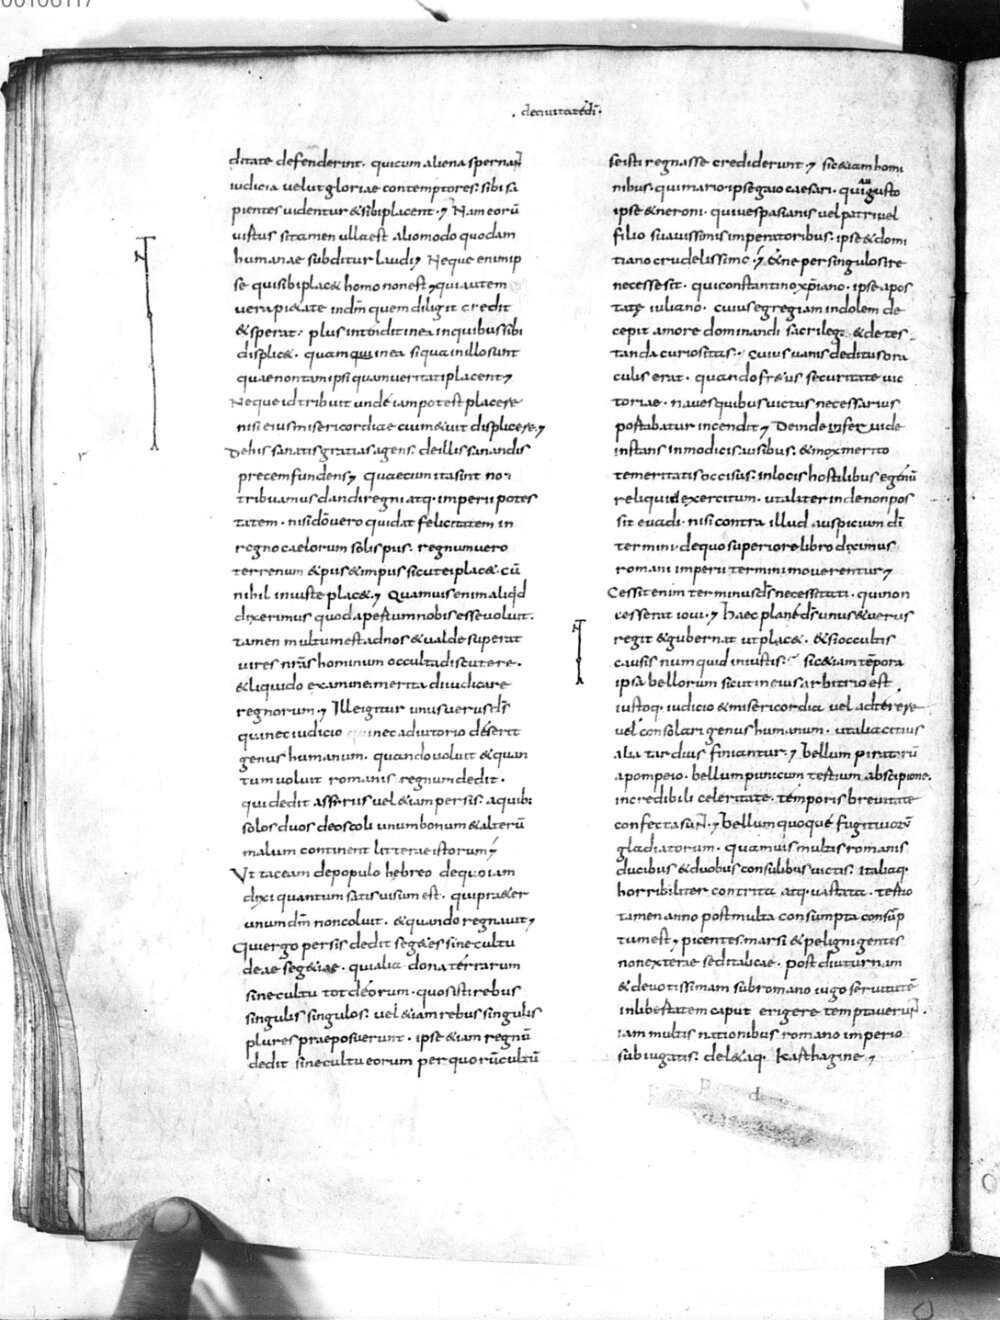 00106117
. deciuitatedī .
ditate defenderint. quicum aliena spernant
iudicia uelut gloriae contemptores. sibi sa
pientes uidentur &sibiplacent. Nam eorū
uirtus sitamen ullaest aliomodo quodam
humanae subditur laudi. Neque enim ip
se quisibiplac& homo nonest, quiautem
uerapi&ate indm̄ quem diligit credit
&sperat. plus intendit inea inquibus sibi
displic&. quamquiinea siqua inillo sunt
quaenontam ipsi quam ueritati placent,
Neque id tribuit unde iampotest placere
nisi eius misericordiae cui m&uit displicere,
Dehis sanatis gratias agens. deillis sanandis
precem fundens, quaecum ita sint non
tribuamus dandi regni atq. imperii potes
tatem. nisi dō uero qui dat felicitatem in
regno caelorum solis piis. regnum uero
terrenum &piis &impiis sicut ei plac&. cū
nihil iniuste plac&, Quamuis enim aliqid
dixerimus quod apertum nobis esse uoluit.
tamen multum est adnos &ualde superat
uires nr̄as hominum occulta discutere.
&liquido examine merita diiudicare
regnorum, Ille igitur unus uerus dī
qui nec iudicio nec adiutorio deserit
genus humanum. quando uoluit &quan
tum uoluit romanis regnum dedit.
qui dedit assyriis uel &iam persis. aquibi
solos duos deos coli unum bonum &alterū
malum continent litterae istorum,
Ut taceam depopulo hebreo dequo iam
dixi quantum satis uisum est. qui pra&er
unum dm̄ non coluit. &quando regnauit,
Qui ergo persis dedit seg&es sine cultu
deae seg&iae. qui alia dona terrarum
sine cultu tot deorum. quos isti rebus
singulis singulos. uel &iam rebus singulis
plures praeposuerunt. ipse &iam regnū
dedit sine cultu eorum per quorū cultū
se isti regnasse crediderunt, sic &iam homi
nibus. qui mario ipse gaio caesari. qui augusto
ipse &neroni. qui uespasianis uel patri uel
filio suauissimis imperatoribus. ipse &domi
tiano crudelissimo, &ne per singulos ire
necesse sit. qui constantino xp̄iano. ipse apos
tatę iuliano. cuius egregiam indolem de
cepit amore dominandi sacrilega &detes
tanda curiositas. Cuius uanis deditus ora
culis erat. quando fr&us securitate uic
toriae. naues quibus uictus necessarius
portabatur incendit, Deinde
instans inmodicis ausibus. &mox merito
temeritatis occisus. inlocis hostilibus egenū
reliquid exercitum. ut aliter inde non pos
sit euadi. nisi contra illud auspicium dī
termini. dequo superiore libro diximus
romani imperii termini mouerentur,
Cessit enim terminus ds̄ necessitati. qui non
cesserat ioui, Haec plane ds̄ unus &uerus
regit &gubernat ut plac&. &si occultis
causis numquid iniustis? sic &iam tēpora
ipsa bellorum sicut ineius arbitrio est
iustoq. iudicio &misericordia uel adterere
uel consolari genus humanum. ut alia citius
alia tardius finiantur, bellum piratarū
apompeio. bellum punicum tertium abscipione.
incredibili celeritate. temporis breuitate
confecta sunt, bellum quoque fugitiuorū
gladiatorum. quamuis multis romanis
ducibus &duobus consulibus uictis. Italiaq.
horribiliter contrita atq. uastata. tertio
tamen anno post multa consumpta consūp
tum est, picentes. marsi &peligni gentes
non exterae sed italicae. post diuturnam
&deuotissimam sub romano iugo seruitutē
inlibertatem caput erigere temptauerunt.
iam multis nationibus romano imperio
subiugatis. del&aq. karthagine,